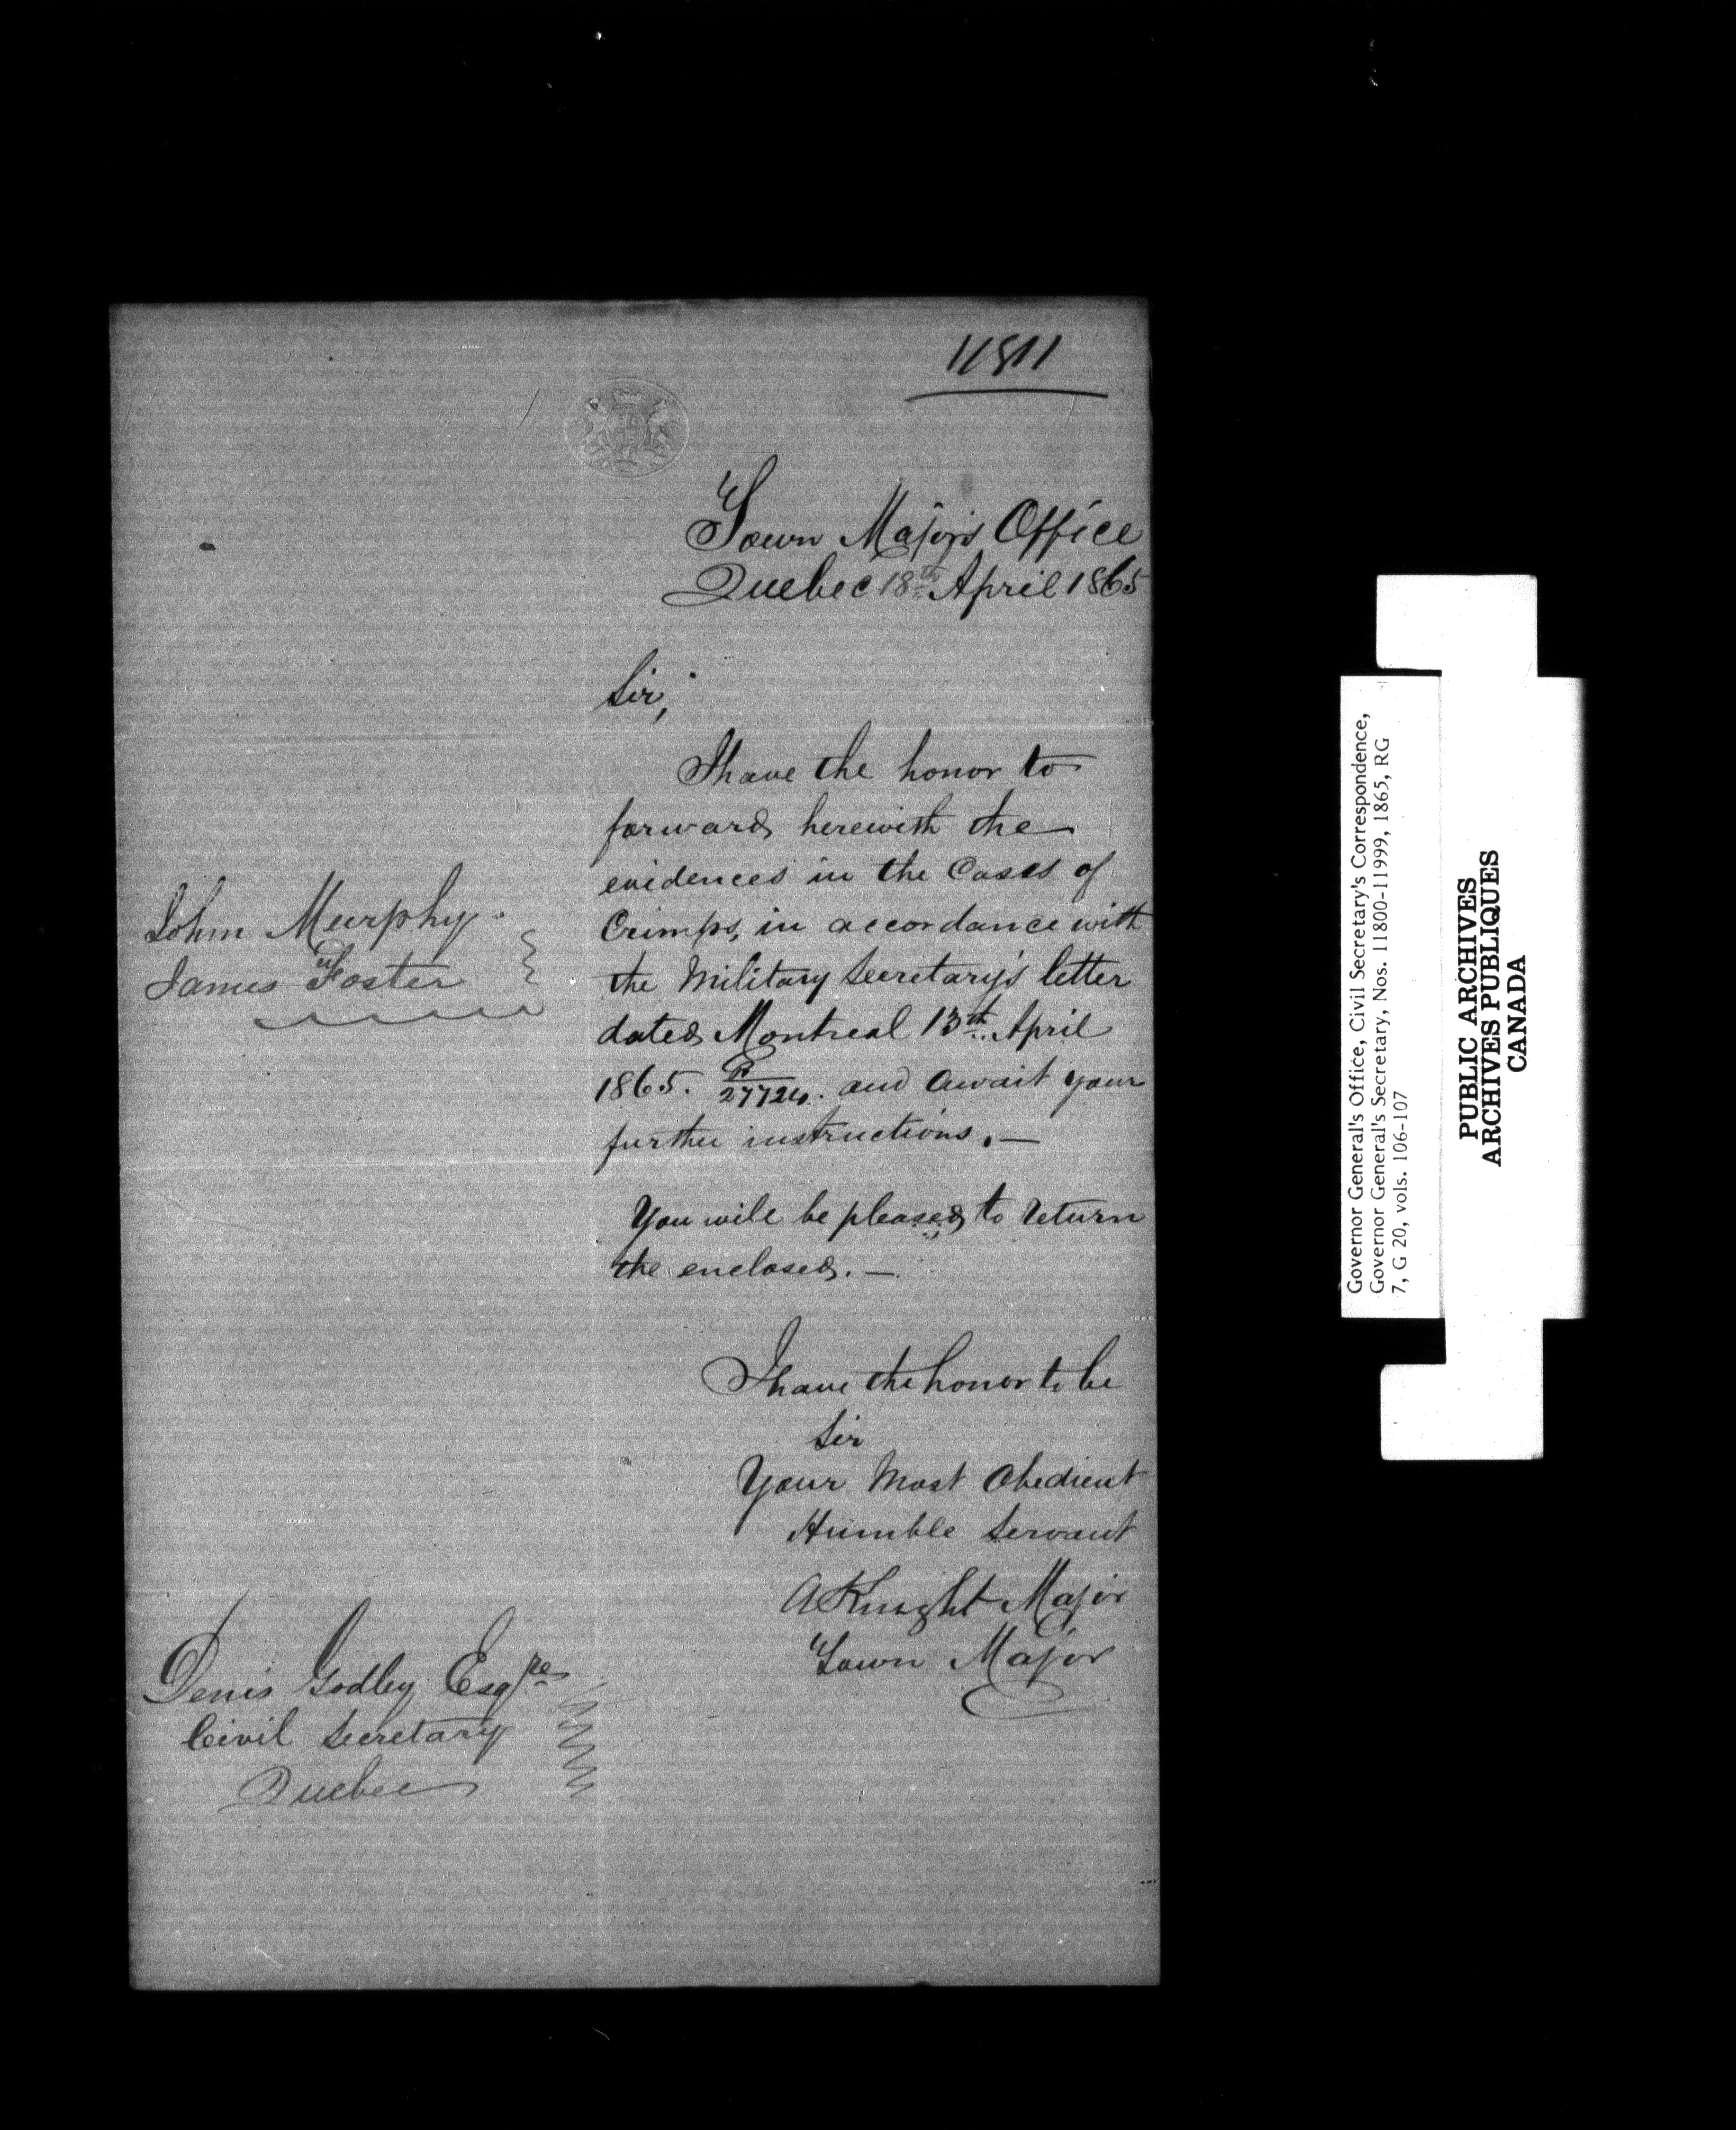 11811
Town Major's Office
Quebec 18th April 1865
Sir,
I have the honor to
forward herewith the
evidences in the Cases of
Crimps, in accordance with
the Military Secretary's letter
dated Montreal 13th April
1865. and await your
further instructions. —
John Murphy
James Foster
You will be pleased to return
the enclosed. —
I have the honor to be
Sir
Your Most Obedient
Humble Servant
A Knight Major
Town Major
Denis Godley Esqre
Civil Secretary
Quebec
Governor General's Office, Civil Secretary's Correspondence,
Governor General's Secretary, Nos. 11800-11999, 1865, RG
7, G 20, vols. 106-107
PUBLIC ARCHIVES
ARCHIVES PUBLIQUES
CANADA